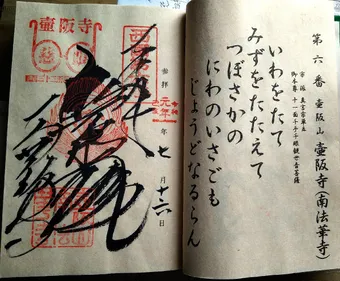 第六番 壺阪山 壺阪寺(南法華寺)
宗派 真言宗単立
御本尊 十一面千手千眼観世音菩薩
いわをたて
みずをたたえて
つぼさかの
にわのいさごも
じょうどなるらん
参拝 令和元年 七月十六日
壷阪寺